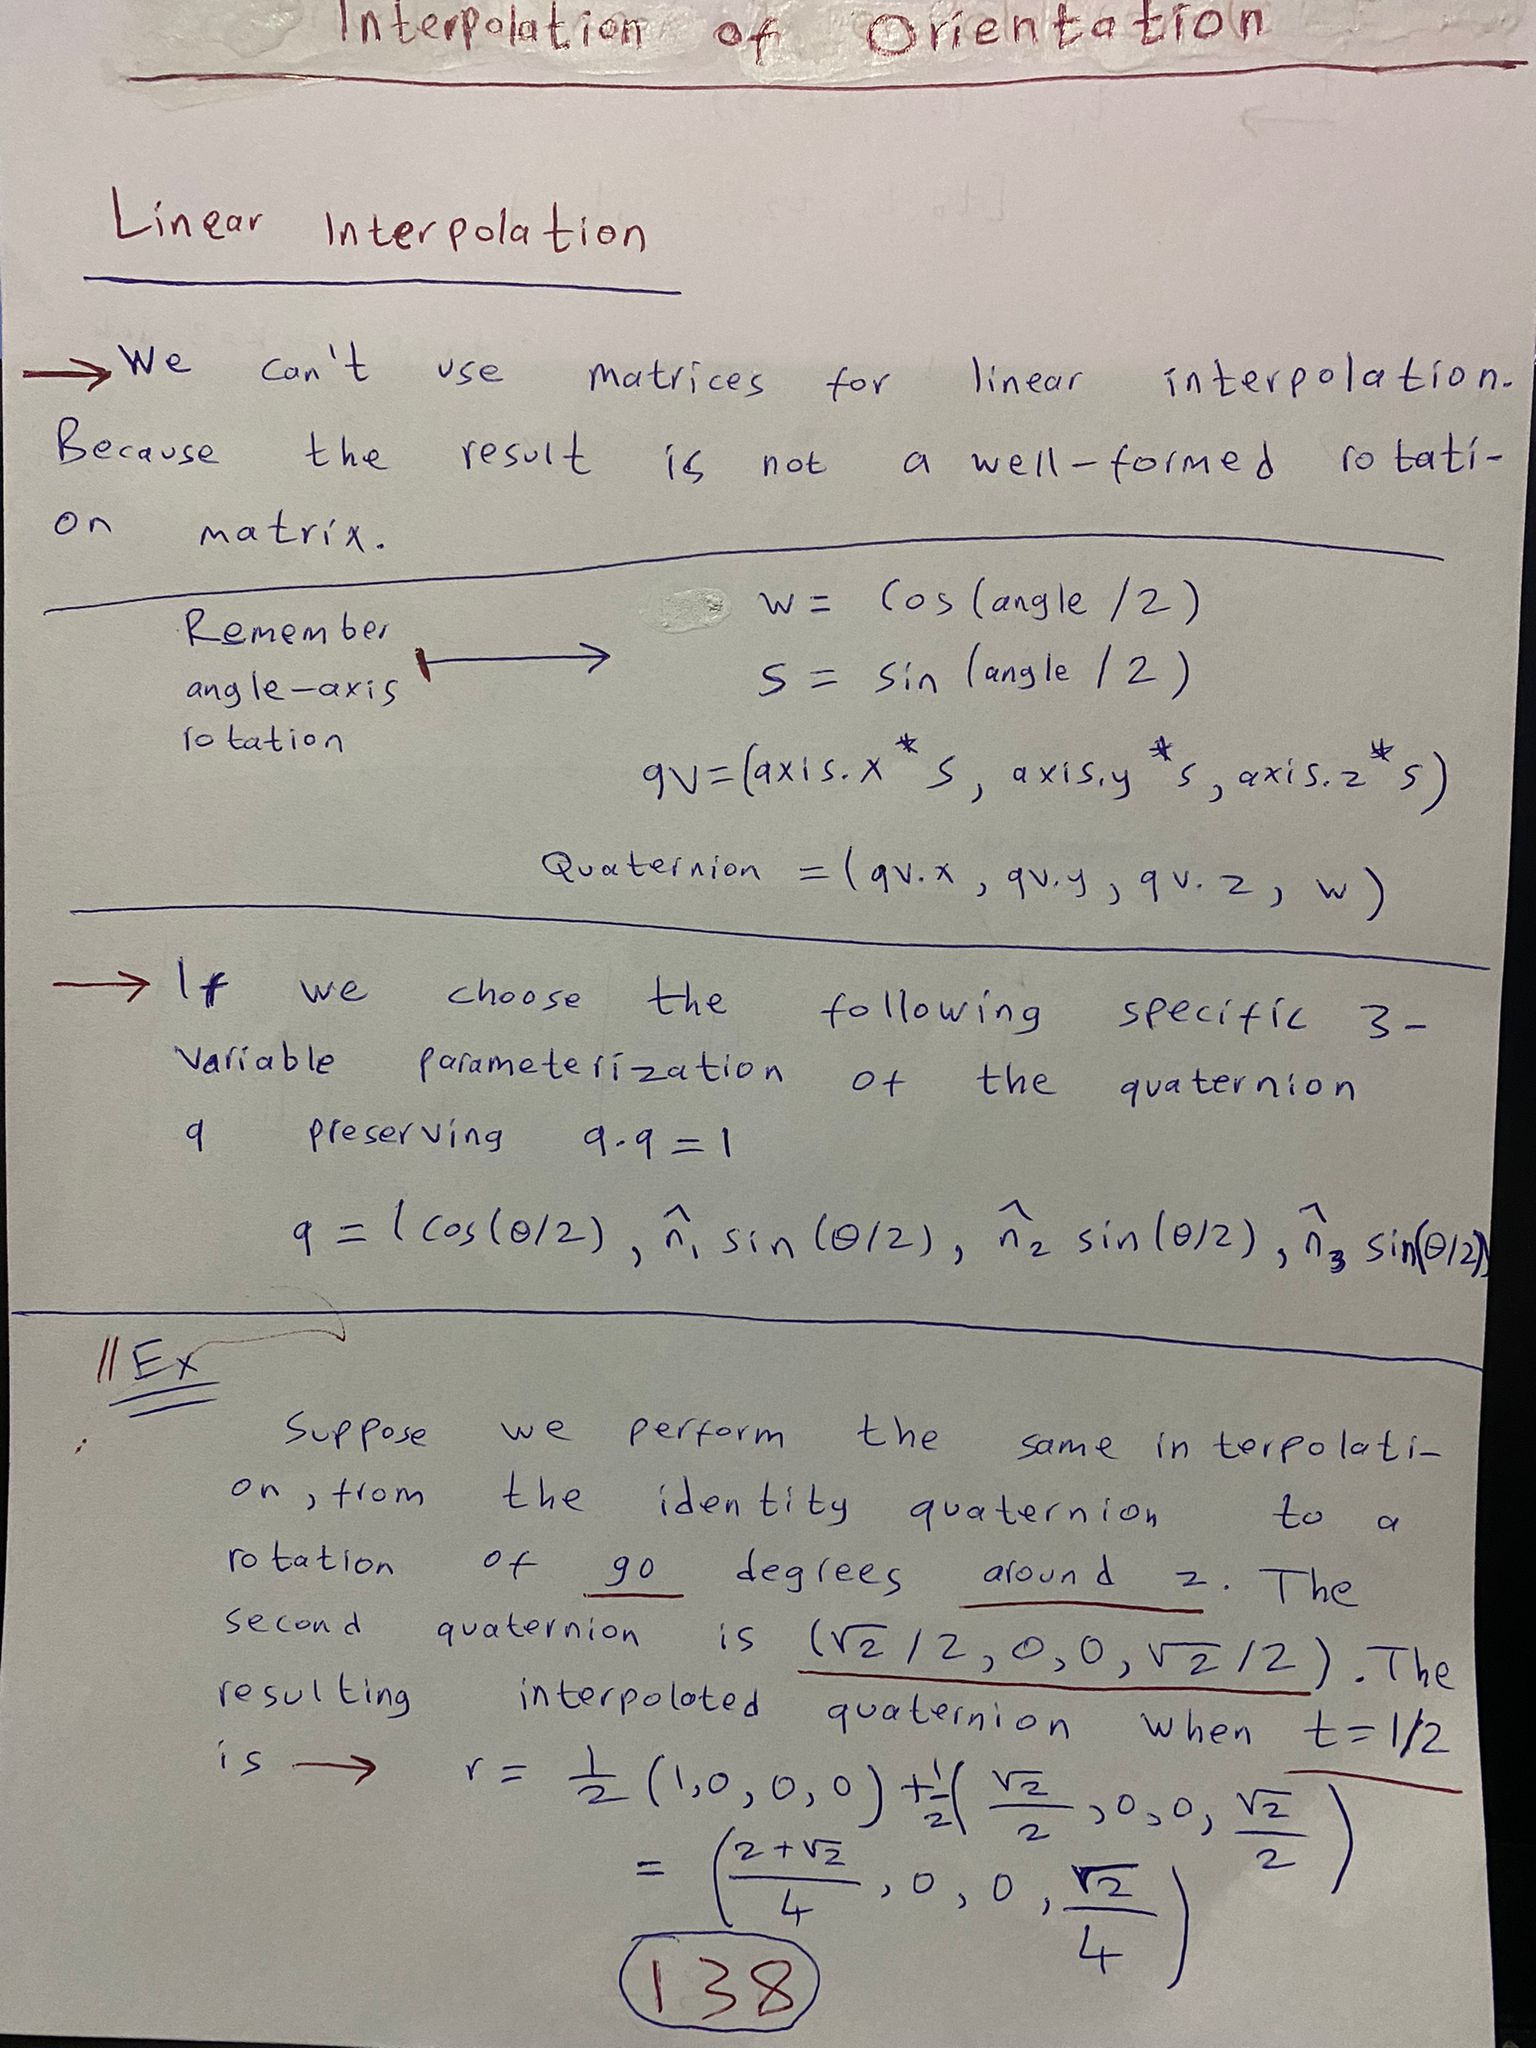 Interpolation of Orientation
Linear Interpolation
→ We can't use matrices for linear interpolation.
Because the result is not a well-formed rotati-
on matrix.
Remember
angle-axis
rotation
→
w = Cos (angle /2)
s = sin (angle /2)
qv=(axis.x * s, axis.y * s, axis.z * s)
Quaternion = (qv.x, qv.y, qv.z, w)
→ If we choose the following specific 3-
variable parameterization of the quaternion
q preserving q.q=1
q = (cos(θ/2), n̂₁ sin(θ/2), n̂₂ sin(θ/2), n̂₃ sin(θ/2))
// Ex
Suppose we perform the same interpolati-
on, from the identity quaternion to a
rotation of 90 degrees around z. The
second quaternion is (√2/2,0,0,√2/2). The
resulting interpolated quaternion when t=1/2
is → r = 1/2 (1,0,0,0) + 1/2 (√2/2,0,0,√2/2)
= ((2+√2)/4, 0, 0, √2/4)
138